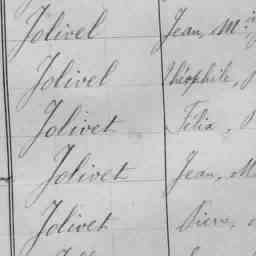 Jolivel Jean, M
Jolivel Théophile,
Jolivet Félia,
Jolivet Jean, M
Jolivet Pierre,